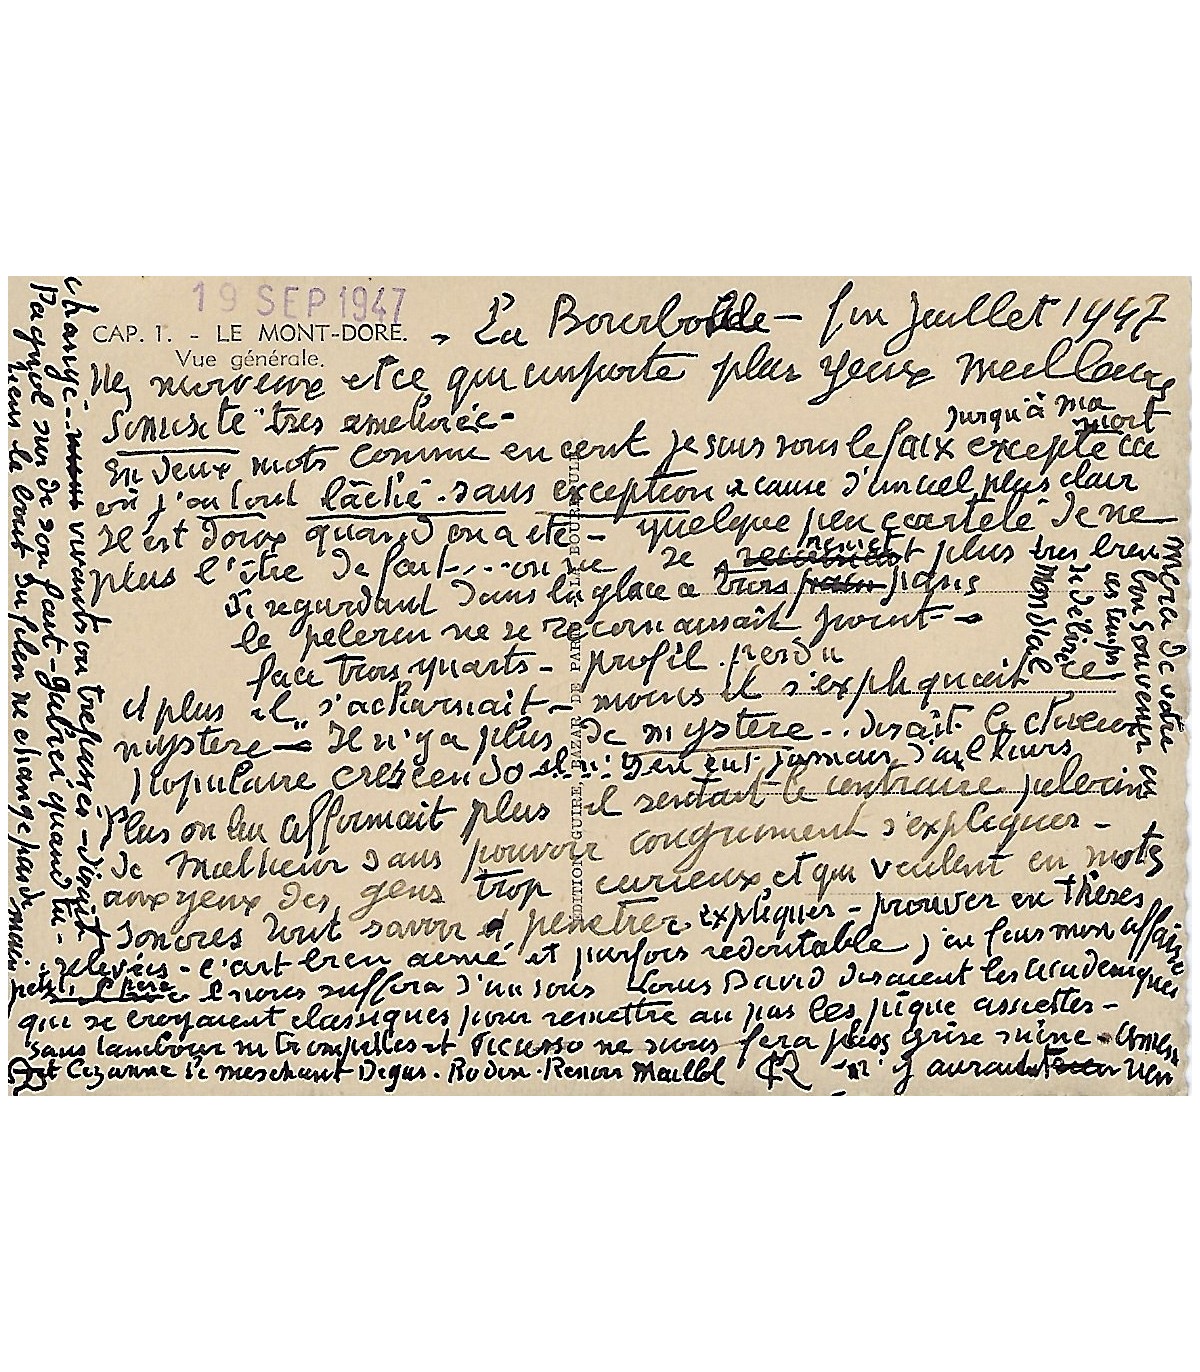 19 SEP 1947
CAP. 1. - LE MONT-DORE.
Vue générale.
La Bourboule - fin Juillet 1947
Nez morveux et ce qui importe plus yeux meilleurs
Sinusite très améliorée -
jusqu'à ma mort
En deux mots comme en cent je suis sous le faix excepté ce
où j'ai tout lâché - sans exception à cause d'un ciel plus clair
Il est doux quand on a été - quelque peu écartelé de ne
plus l'être de fait.... on ne se remet plus très bien
Se regardant dans la glace à trois pans
le pèlerin ne se reconnaissait point -
face trois quarts - profil perdu
et plus il s'acharnait - moins il s'expliquait ce
mystère - Il n'y a plus de mystère .. disait le chœur
populaire crescendo il n'y en eut jamais d'ailleurs
Plus on lui affirmait plus il sentait le contraire pèlerin
de malheur sans pouvoir congrument s'expliquer -
aux yeux des gens trop curieux et qui veulent en mots
sonores tout savoir et pénétrer expliquer - prouver en thèses
relevées - l'art bien aimé et parfois redoutable j'en fais mon affaire
disaient les académiques
qui se croyaient classiques pour remettre au pas les pique assiettes -
sans tambour ni trompettes et Picasso ne nous fera plus grise mine -
et Cézanne le méchant Degas - Rodin - Renoir Maillol n'y auraient rien
changé - vivants ou trépassés - dirait
Pagnol sur de son fait - Gabriel quand tu
tiens le bout du filon ne change pas de main
Merci de votre
bon souvenir en
ces temps
de délire
mondial
EDITION GUIRE, BAZAR DE PARIS - LA BOURBOULE